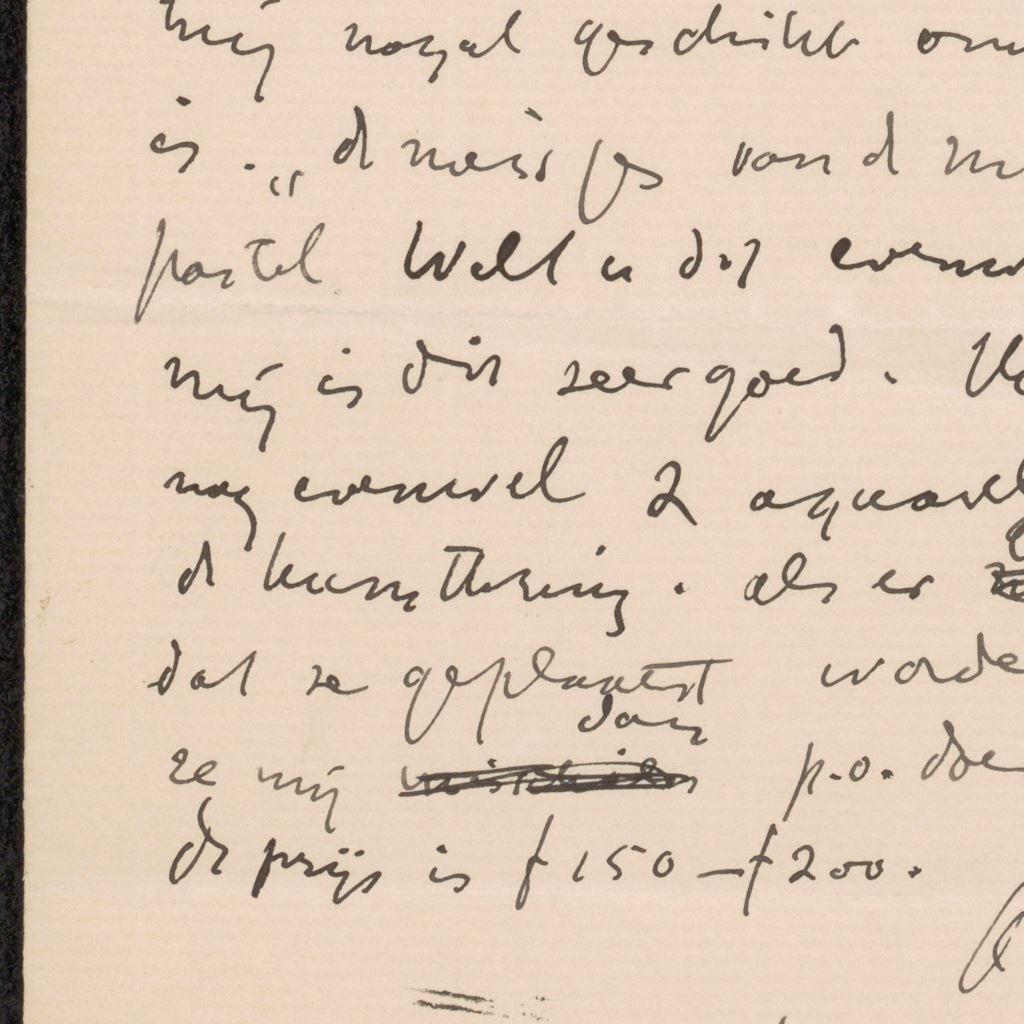 mij nogal geschikt om
is. „de meisjes van de
pastel Wilt u dit even
mij is dit zeer goed.
nog evenwel 2 aquarel
de kunsthring. als er
dat ze geplaatst worde
dan
ze mij misschien p.o. doe
de prijs is f 150 – f 200.